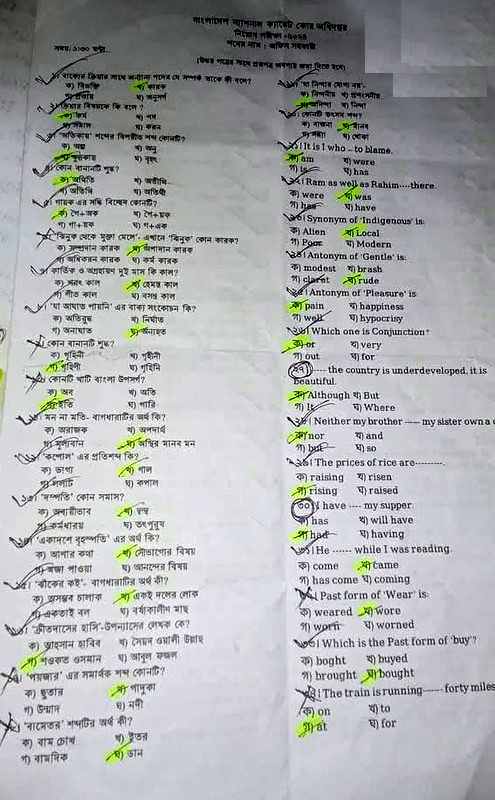 বাংলাদেশ ন্যাশনাল ক্যাডেট কোর অধিদপ্তর
নিয়োগ পরীক্ষা -২০২৪
পদের নাম : অফিস সহকারী
সময়: ১.৩০ ঘন্টা
(উত্তর পত্রের সাথে প্রশ্নপত্র অবশ্যই জমা দিতে হবে)
১। বাক্যের ক্রিয়ার সাথে অন্যান্য পদের যে সম্পর্ক তাকে কী বলে?
ক) বিভক্তি খ) কারক
গ) প্রত্যয় ঘ) অনুসর্গ
ক্রিয়ার বিষয়কে কি বলে ?
ক) কর্ম খ) পদ
ঘ) করন
'অতিকায়' শব্দের বিপরীত শব্দ কোনটি?
ক) অল্প খ) অনু
গ) ক্ষুদ্রকায় ঘ) বৃহৎ
কোন বানানটি শুদ্ধ?
ক) অতিথি খ) অতীথি
গ) অতিথী ঘ) অতিথী
৫। গায়ক এর সন্ধি বিচ্ছেদ কোনটি?
ক) গৈ+অক খ) গৈ+য়ক
গ) গা+য়ক ঘ) গ+এক
ঝিনুক থেকে মুক্তা মেলে'- এখানে 'ঝিনুক' কোন কারক?
ক) সম্প্রদান কারক খ) অপাদান কারক
গ) অধিকরন কারক ঘ) কর্ম কারক
কার্তিক ও অগ্রহায়ণ দুই মাস কি কাল?
ক) শরৎ কাল খ) হেমন্ত কাল
গ) শীত কাল ঘ) বসন্ত কাল
'যা আঘাত পায়নি' এর বাক্য সংকোচন কি?
গ) অনাঘাত ঘ) অনাহত
কোন বানানটি শুদ্ধ?
ক) গৃহিনী খ) গৃহীনী
গ) গৃহিণী ঘ) গৃহিনি
কোনটি খাটি বাংলা উপসর্গ?
ক) অব খ) অতি
গ) ইতি ঘ) পরি
মন না মতি- বাগধারাটির অর্থ কি?
ক) অরাজক খ) অপদার্থ
গ) মূল্যবান ঘ) অস্থির মানব মন
১২। 'কপোল' এর প্রতিশব্দ কি?
ক) ভাগ্য খ) গাল
গ) ললাট ঘ) কপাল
১৩। 'দম্পতি' কোন সমাস?
ক) অব্যয়ীভাব খ) দ্বন্দ্ব
গ) কর্মধারয় ঘ) তৎপুরুষ
'একাদশে বৃহস্পতি' এর অর্থ কি?
ক) আশার কথা খ) সৌভাগ্যের বিষয়
গ) মজা পাওয়া ঘ) আনন্দের বিষয়
'ঝাঁকের কই'- বাগধারাটির অর্থ কী?
ক) অসম্ভব চালাক খ) একই দলের লোক
গ) একতাই বল ঘ) বর্ষাকালীন মাছ
'ক্রীতদাসের হাসি'-উপন্যাসের লেখক কে?
ক) আহসান হাবিব খ) সৈয়দ ওয়ালী উল্লাহ
গ) শওকত ওসমান ঘ) আবুল ফজল
'পয়জার' এর সমার্থক শব্দ কোনটি?
ক) ছুতার খ) পাদুকা
গ) উন্মাদ ঘ) নদী
'বামেতর' শব্দটির অর্থ কী?
ক) বাম চোখ খ) ইতর
গ) বামদিক ঘ) ডান
'যা নিন্দার যোগ্য নয়'-
ক) নিন্দনীয় খ) প্রশংসনীয়
গ) অনিন্দ্য ঘ) নিন্দা
কোনটি তৎসম শব্দ?
ক) বাজনা খ) মানব
ঘ) খোকা
২১। It is I who – to blame.
ক) am খ) were
গ) is ঘ) has
২২। Ram as well as Rahim----there.
ক) were খ) was
গ) has ঘ) have
২৩। Synonym of 'Indigenous' is:
ক) Alien খ) Local
গ) Poor ঘ) Modern
২৪। Antonym of 'Gentle' is:
ক) modest খ) brash
গ) claret ঘ) rude
২৫। Antonym of 'Pleasure' is
ক) pain খ) happiness
গ) well ঘ) hypocrisy
২৬। Which one is Conjunction?
ক) or খ) very
গ) out ঘ) for
২৭। ---- the country is underdeveloped, it is
beautiful.
ক) Although খ) But
গ) It ঘ) Where
২৮। Neither my brother ----- my sister own a
ক) nor খ) and
গ) but ঘ) so
২৯। The prices of rice are---------.
ক) raising খ) risen
গ) rising ঘ) raised
৩০। I have ---- my supper
ক) has খ) will have
গ) had ঘ) having
৩১। He ------ while I was reading.
ক) come খ) came
গ) has come ঘ) coming
৩২। Past form of 'Wear' is:
ক) weared খ) wore
গ) worn ঘ) worned
৩৩। Which is the Past form of 'buy'?
ক) boght খ) buyed
গ) brought ঘ) bought
৩৪। The train is running------ forty miles
ক) on খ) to
গ) at ঘ) for